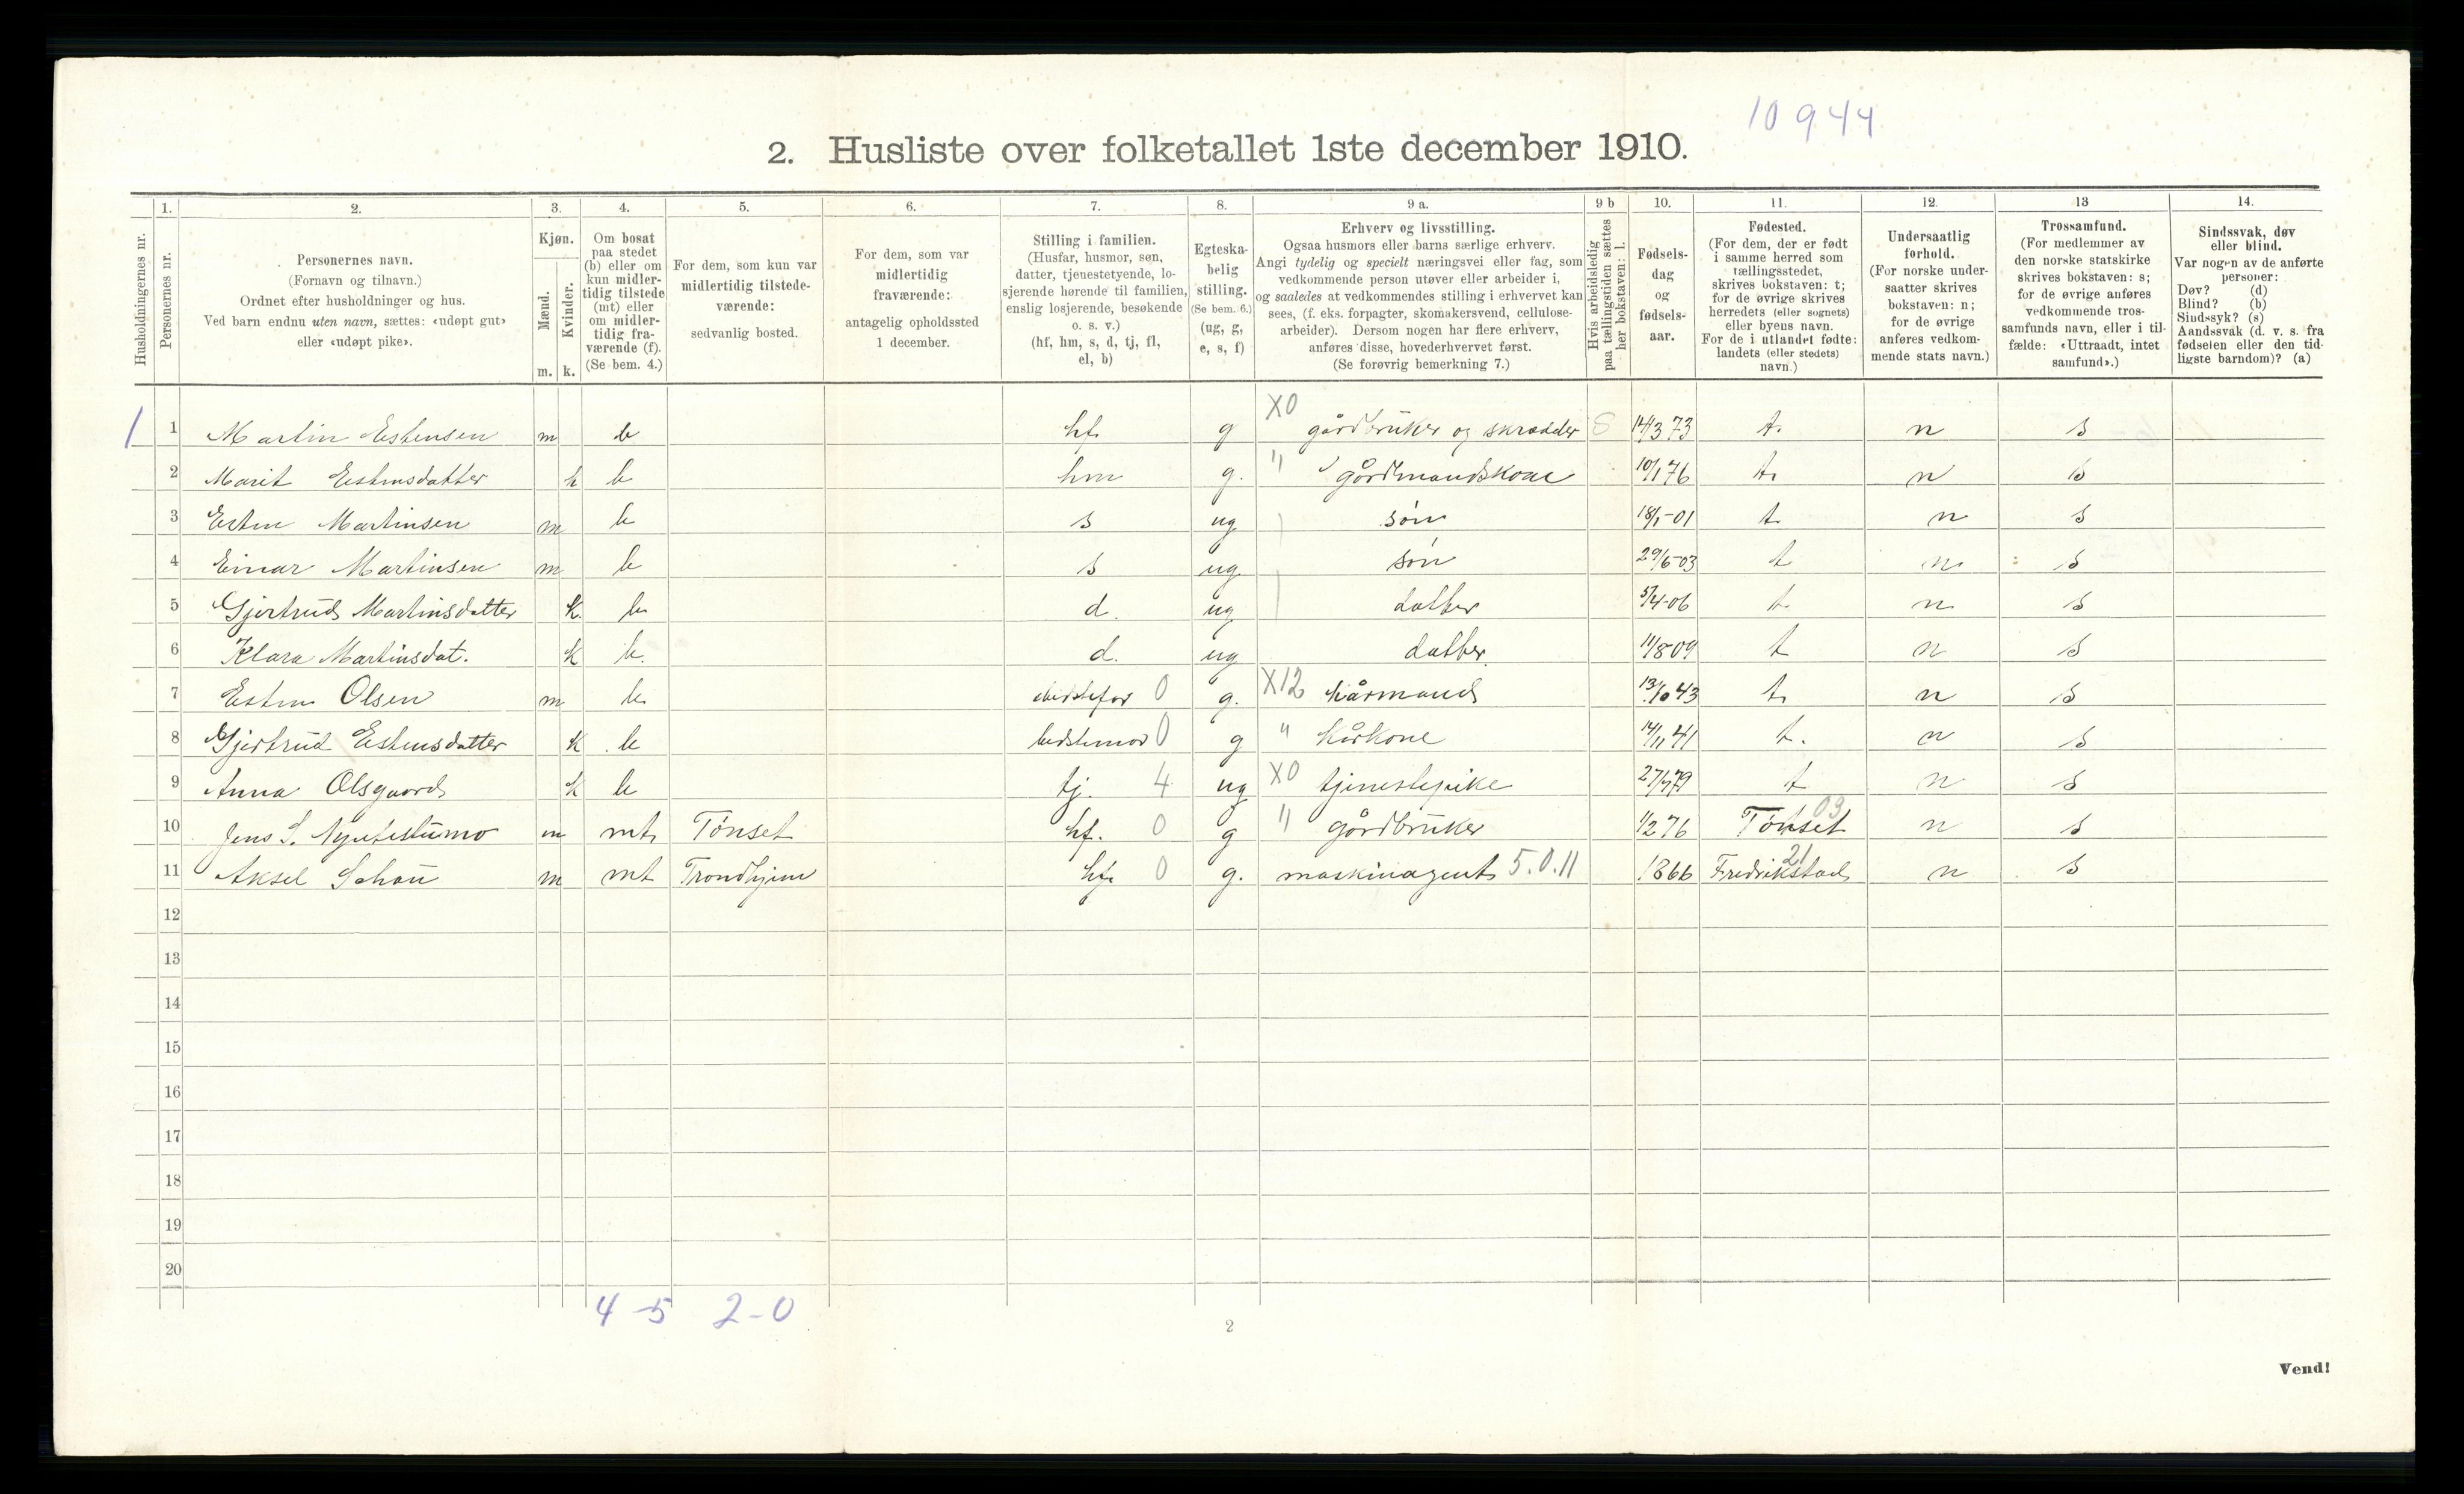 10 944
2. Husliste over folketallet 1ste december 1910.
1. 2. 3. 4. 5. 6. 7. 8. 9 a. 9 b 10. 11. 12. 13 14.
Husholdningernes nr.
Personernes nr.
Personernes navn.
(Fornavn og tilnavn.)
Ordnet efter husholdninger og hus.
Ved barn endnu uten navn, sættes: «udøpt gut»
eller «udøpt pike».
Kjøn.
Mænd.
Kvinder.
m. k.
Om bosat
paa stedet
(b) eller om
kun midler-
tidig tilstede
(mt) eller
om midler-
tidig fra-
værende (f).
(Se bem. 4.)
For dem, som kun var
midlertidig tilstede-
værende:
sedvanlig bosted.
For dem, som var
midlertidig
fraværende:
antagelig opholdssted
1 december.
Stilling i familien.
(Husfar, husmor, søn,
datter, tjenestetyende, lo-
sjerende hørende til familien,
enslig losjerende, besøkende
o. s. v.)
(hf, hm, s, d, tj, fl,
el, b)
Egteska-
belig
stilling.
(Se bem. 6.)
(ug, g,
e, s, f)
Erhverv og livsstilling.
Ogsaa husmors eller barns særlige erhverv.
Angi tydelig og specielt næringsvei eller fag, som
vedkommende person utøver eller arbeider i,
og saaledes at vedkommendes stilling i erhvervet kan
sees, (f. eks. forpagter, skomakersvend, cellulose-
arbeider). Dersom nogen har flere erhverv,
anføres disse, hovederhvervet først.
(Se forøvrig bemerkning 7.)
Hvis arbeidsledig
paa tællingstiden sættes
her bokstaven: l.
Fødsels-
dag
og
fødsels-
aar.
Fødested.
(For dem, der er født
i samme herred som
tællingsstedet,
skrives bokstaven: t;
for de øvrige skrives
herredets (eller sognets)
eller byens navn.
For de i utlandet fødte:
landets (eller stedets)
navn.)
Undersaatlig
forhold.
(For norske under-
saatter skrives
bokstaven: n;
for de øvrige
anføres vedkom-
mende stats navn.)
Trossamfund.
(For medlemmer av
den norske statskirke
skrives bokstaven: s;
for de øvrige anføres
vedkommende tros-
samfunds navn, eller i til-
fælde: «Uttraadt, intet
samfund».)
Sindssvak, døv
eller blind.
Var nogen av de anførte
personer:
Døv? (d)
Blind? (b)
Sindssyk? (s)
Aandssvak (d. v. s. fra
fødselen eller den tid-
ligste barndom)? (a)
1 1 Martin Estensen m b hf. g X0 gårdbruker og skrædder S 14/3 73 t. n s
2 Marit Estensdatter k b hm g. " gårdmandskone 10/1 76 t. n s
3 Esten Martinsen m b s ug søn 18/1-01 t. n s
4 Einar Martinsen m b s ug søn 29/6-03 t n. s
5 Gjertrud Martinsdatter k. b d. ug datter 5/4-06 t. n s
6 Klara Martinsdat. k b. d. ug datter 11/8 09 t n s
7 Esten Olsen m b. bedstefar 0 g. X12 kårmand 13/10 43 t. n s
8 Gjertrud Estensdatter k b bedstemor 0 g " kårkone 14/11 41 t. n s
9 Anna Olsgaard k b tj. 4 ug X0 tjenestepike 27/7 79 t n s
10 Jens S. m mt. Tønset hf. 0 g " gårdbruker 1/2 76 Tønset 03 n s
11 Aksel Schou m mt Trondhjem hf. 0 g. maskinagent 5.0.11 1866 Fredrikstad 21 n s
12
13
14
15
16
17
18
19
20
4-5 2-0
2
Vend!